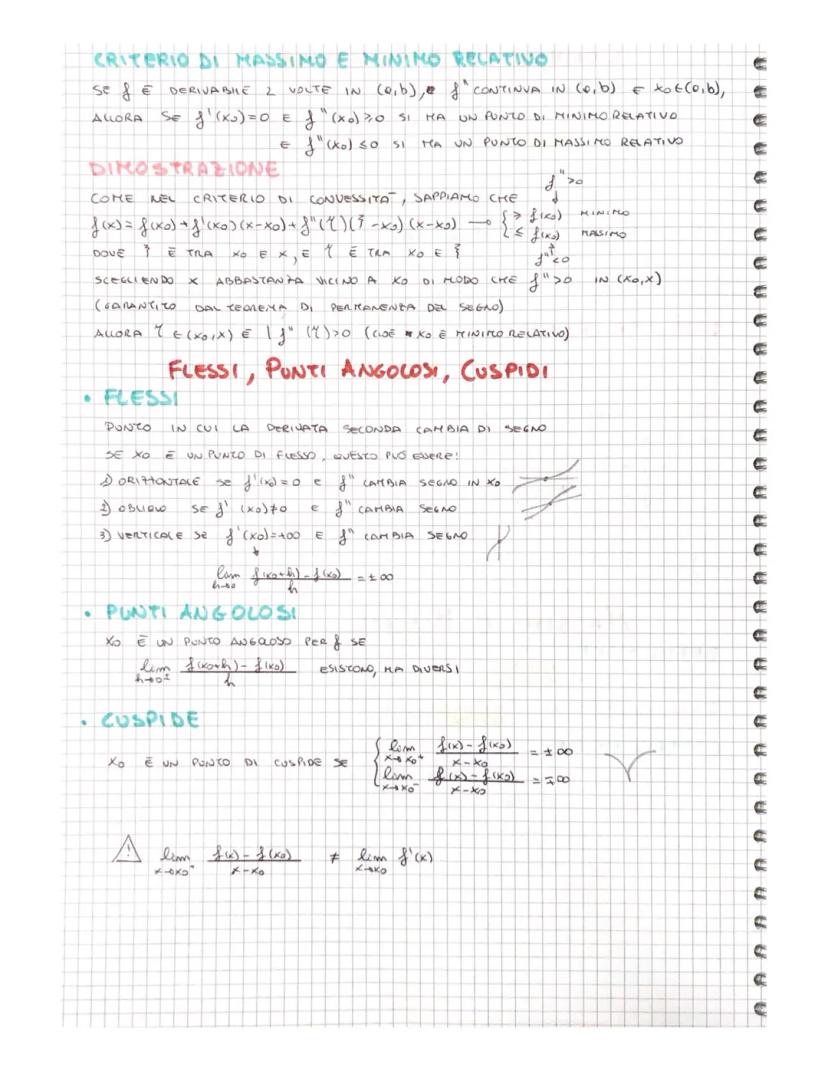 CRITERIO DI MASSIMO E MINIMO RELATIVO
SE f È DERIVABILE 2 VOLTE IN (a,b), f" CONTINUA IN (a,b) E x0∈(a,b),
ALLORA SE f'(x0)=0 E f"(x0)≥0 SI HA UN PUNTO DI MINIMO RELATIVO
E f"(x0)≤0 SI HA UN PUNTO DI MASSIMO RELATIVO
DIMOSTRAZIONE
f">0
COME NEL CRITERIO DI CONVESSITÀ, SAPPIAMO CHE
f(x)=f(x0)+f'(x0)(x-x0)+f"(η)(ξ-x0)(x-x0) → { ≥ f(x0) MINIMO
≤ f(x0) MASSIMO
DOVE ξ È TRA x0 E x, E η È TRA x0 E ξ
f"<0
SCEGLIENDO x ABBASTANZA VICINO A x0 DI MODO CHE f">0 IN (x0,x)
(GARANTITO DAL TEOREMA DI PERMANENZA DEL SEGNO)
ALLORA η∈(x0,x) E f"(η)>0 (CIOÈ x0 È MINIMO RELATIVO)
FLESSI, PUNTI ANGOLOSI, CUSPIDI
• FLESSI
PUNTO IN CUI LA DERIVATA SECONDA CAMBIA DI SEGNO
SE x0 È UN PUNTO DI FLESSO, QUESTO PUÒ ESSERE:
1) ORIZZONTALE SE f'(x0)=0 E f" CAMBIA SEGNO IN x0
2) OBLIQUO SE f'(x0)≠0 E f" CAMBIA SEGNO
3) VERTICALE SE f'(x0)=±∞ E f" CAMBIA SEGNO
↓
lim h→0 f(x0+h)-f(x0) / h = ±∞
• PUNTI ANGOLOSI
x0 È UN PUNTO ANGOLOSO PER f SE
lim h→0± f(x0+h)-f(x0) / h ESISTONO, MA DIVERSI
• CUSPIDE
x0 È UN PUNTO DI CUSPIDE SE { lim x→x0+ f(x)-f(x0) / x-x0 = ±∞
lim x→x0- f(x)-f(x0) / x-x0 = ∓∞
⚠ lim x→x0 f(x)-f(x0) / x-x0 ≠ lim x→x0 f'(x)